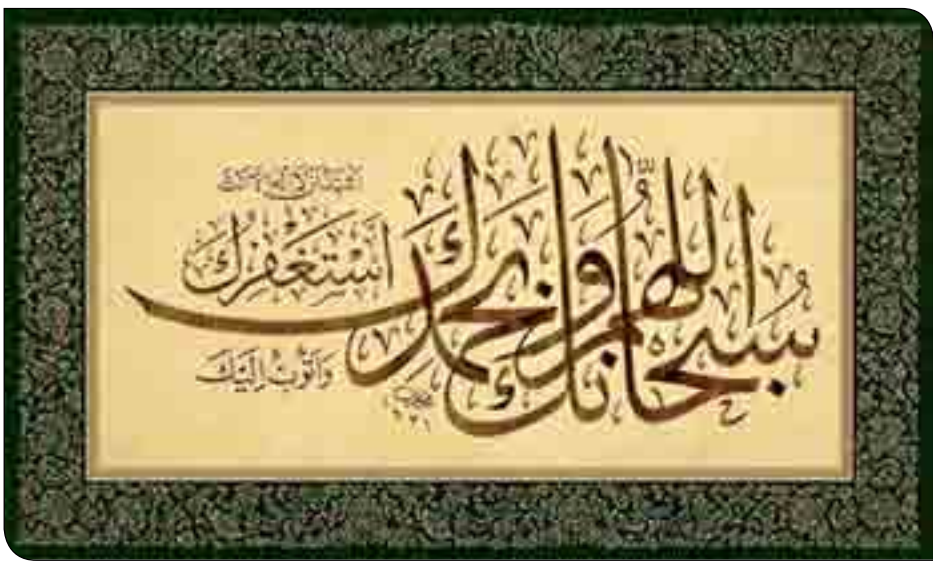 سُبحانك اللهمَّ وَبحمدك
أشهد أن لا إله إلا أنت
أَسْتَغْفِرُكَ
وَأَتُوبُ إِلَيْكَ